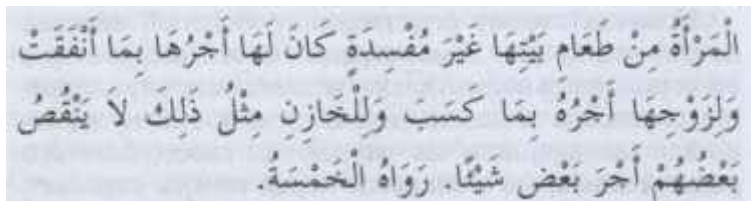 الْمَرْأَةُ مِنْ طَعَامِ بَيْتِهَا غَيْرَ مُفْسِدَةٍ كَانَ لَهَا أَجْرُهَا بِمَا أَنْفَقَتْ
وَلِزَوْجِهَا أَجْرُهُ بِمَا كَسَبَ وَلِلْخَازِنِ مِثْلُ ذَلِكَ لاَ يَنْقُصُ
بَعْضُهُمْ أَجْرَ بَعْضٍ شَيْئًا. رَوَاهُ الْخَمْسَةُ.